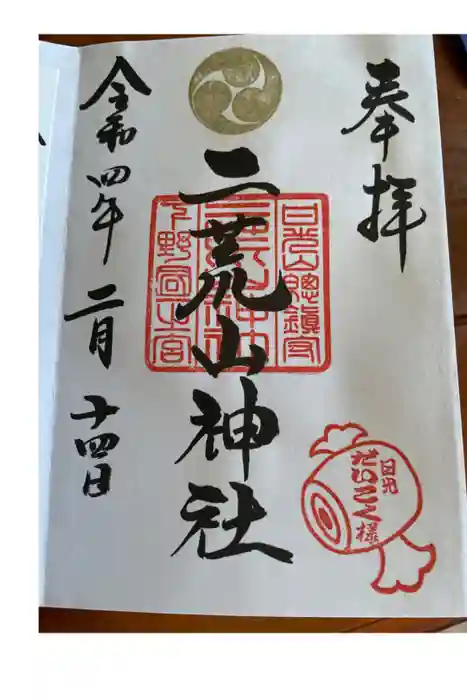 奉拝
二荒山神社
日光山總鎮守
下野國一宮
日光
だいこく様
令和四年二月十四日